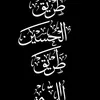 طريق
الحسين
طريق